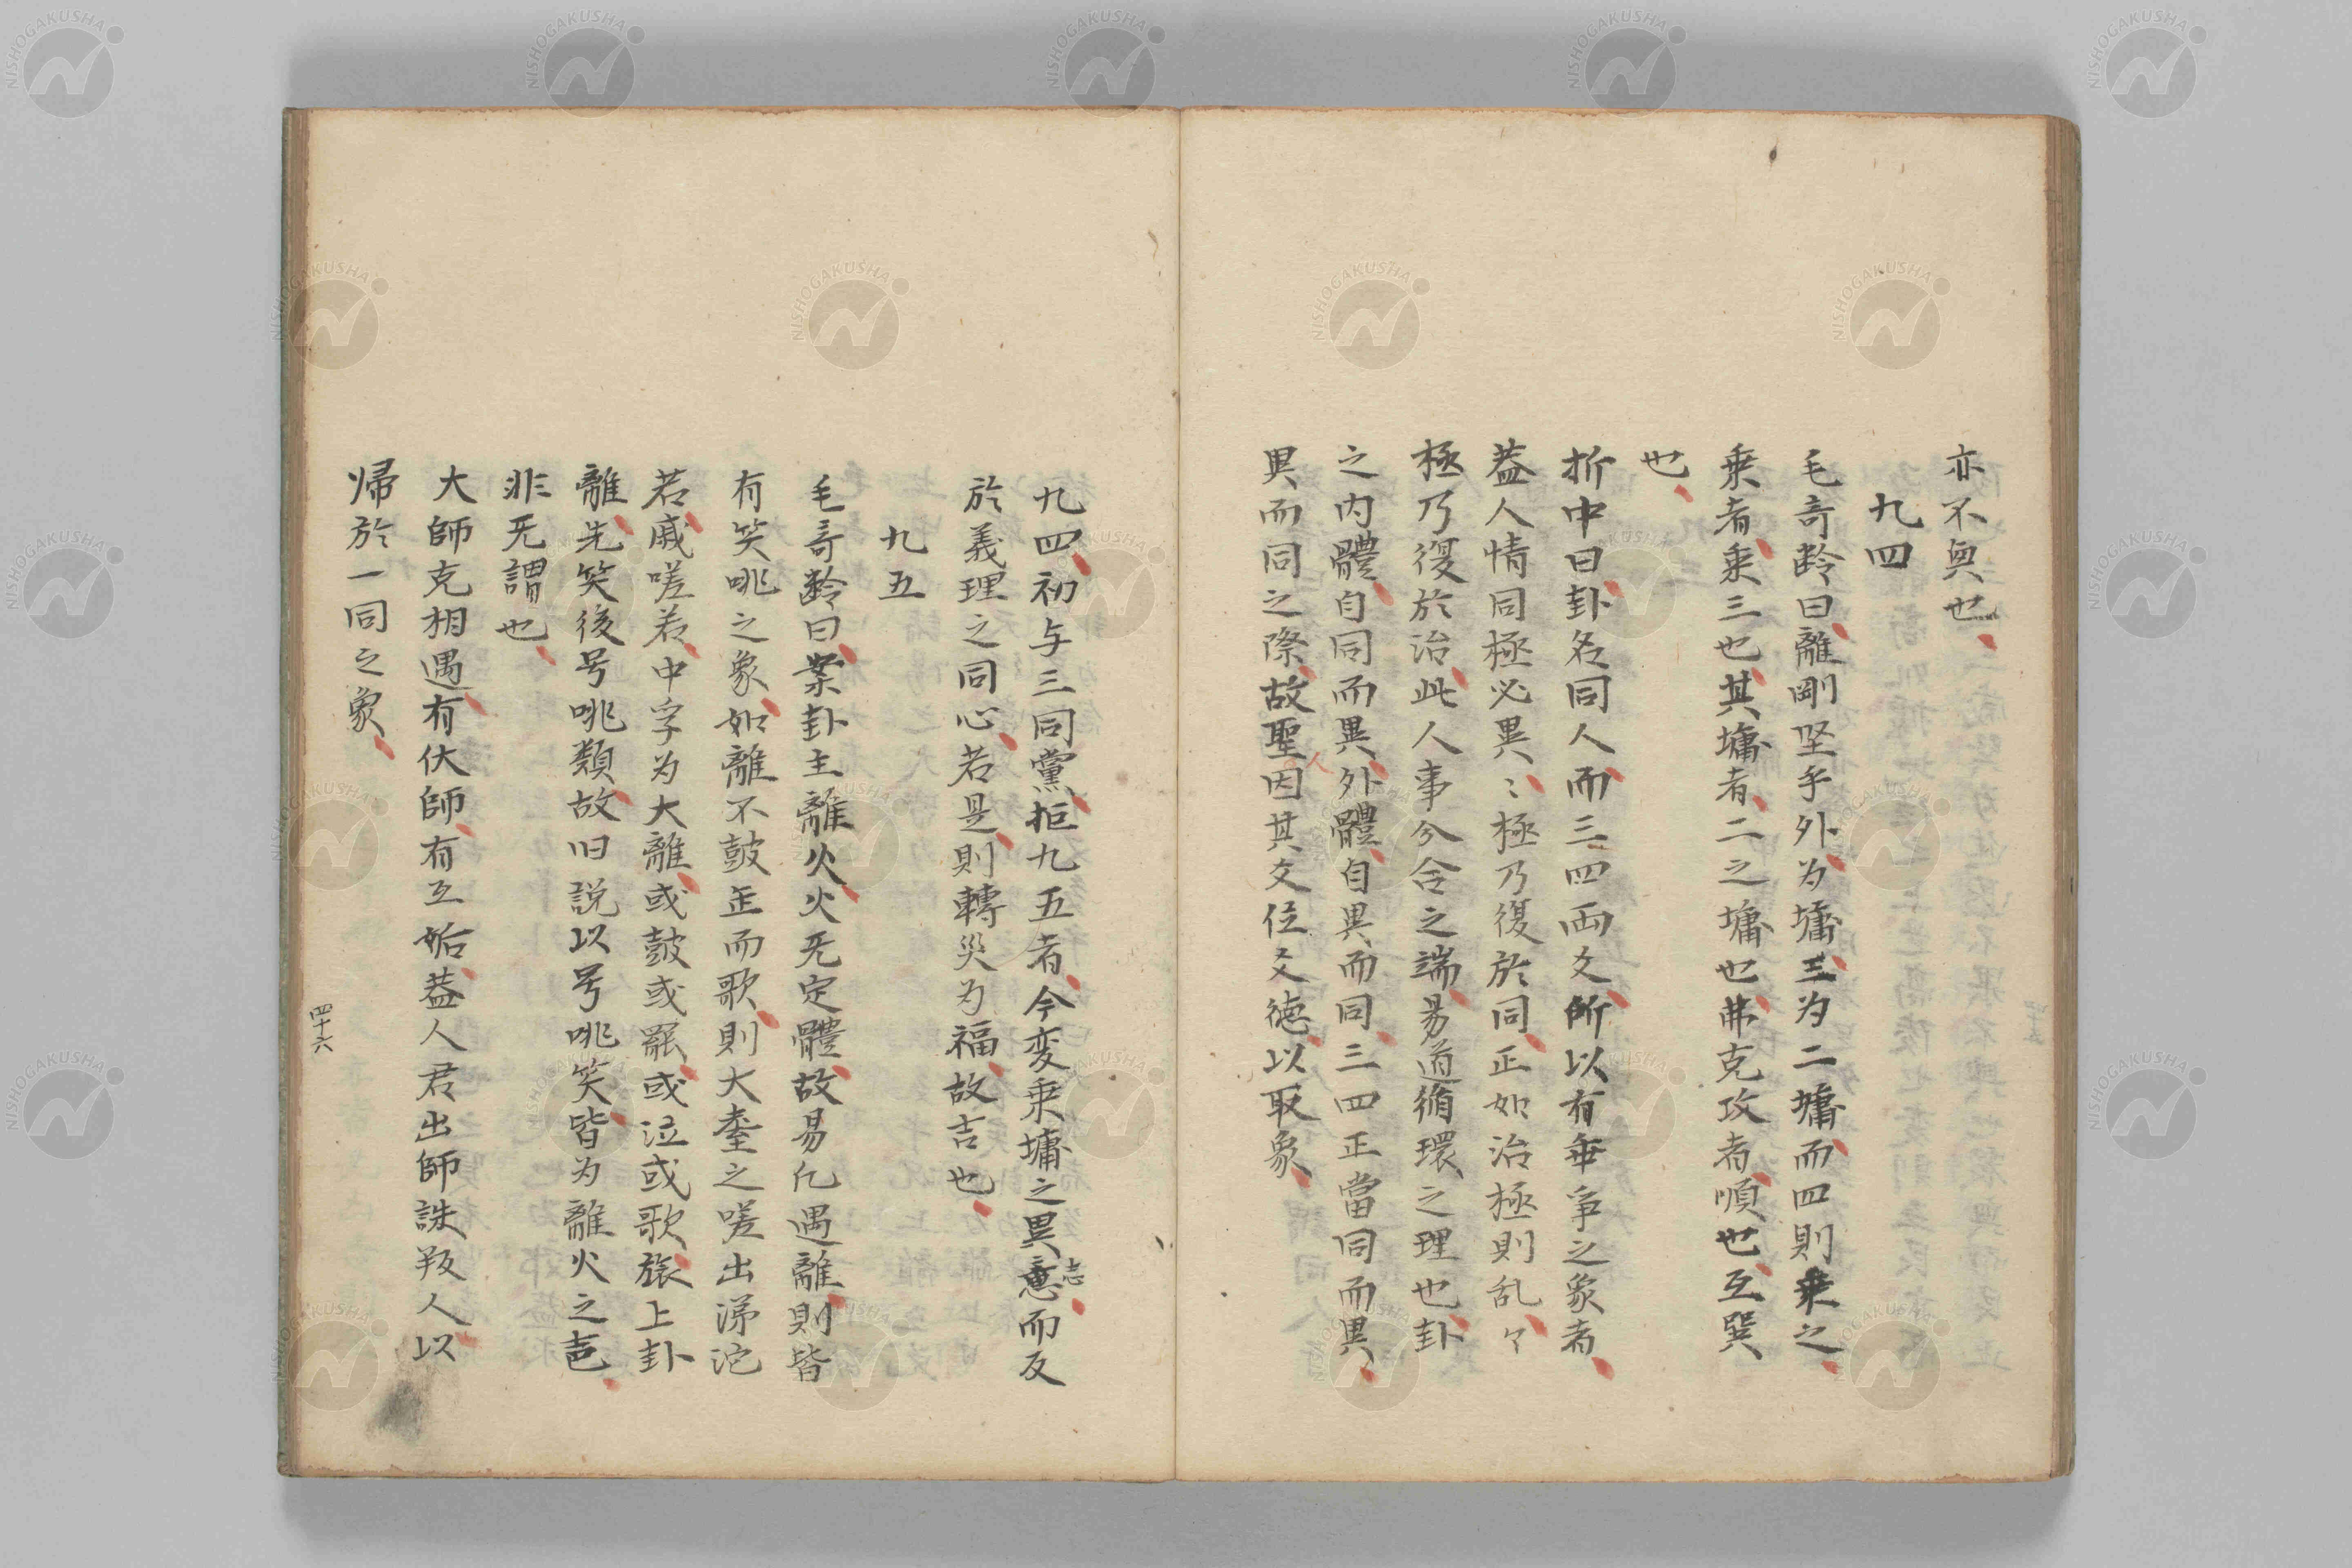 亦不與也、
九四
毛奇齡曰、離剛坚乎外、为墉、三为二墉、而四則乗之、
乗者、乗三也、其墉者、二之墉也、弗克攻者、順也、互巽
也、
折中曰、卦名同人、而三四両爻、所以有乖爭之象者、
葢人情同極必異、〻極乃復於同、正如治極則乱、々
極乃復於治、此人事分合之端、易道循環之理也、卦
之内體、自同而異、外體、自異而同、三四正當同而異、
異而同之際、故聖人因其爻位爻德、以取象、
九四、初与三同黨、拒九五者、今変乗墉之異志、而反
於義理之同心、若是、則轉災为福、故吉也、
九五
毛奇齡曰、案卦主離火、火无定體、故易凡遇離、則皆
有笑咷之象、如離不鼓缶而歌、則大耋之嗟出涕沱
若、戚嗟若、中孚为大離、或鼓或罷、或泣或歌、旅上卦
離、先笑後号咷類、故旧説以号咷笑、皆为離火之声、
非无謂也、
大師克相遇、有伏師、有互姤、葢人君出師誅叛人、以
帰於一同之象、
四十六
NISHOGAKUSHA